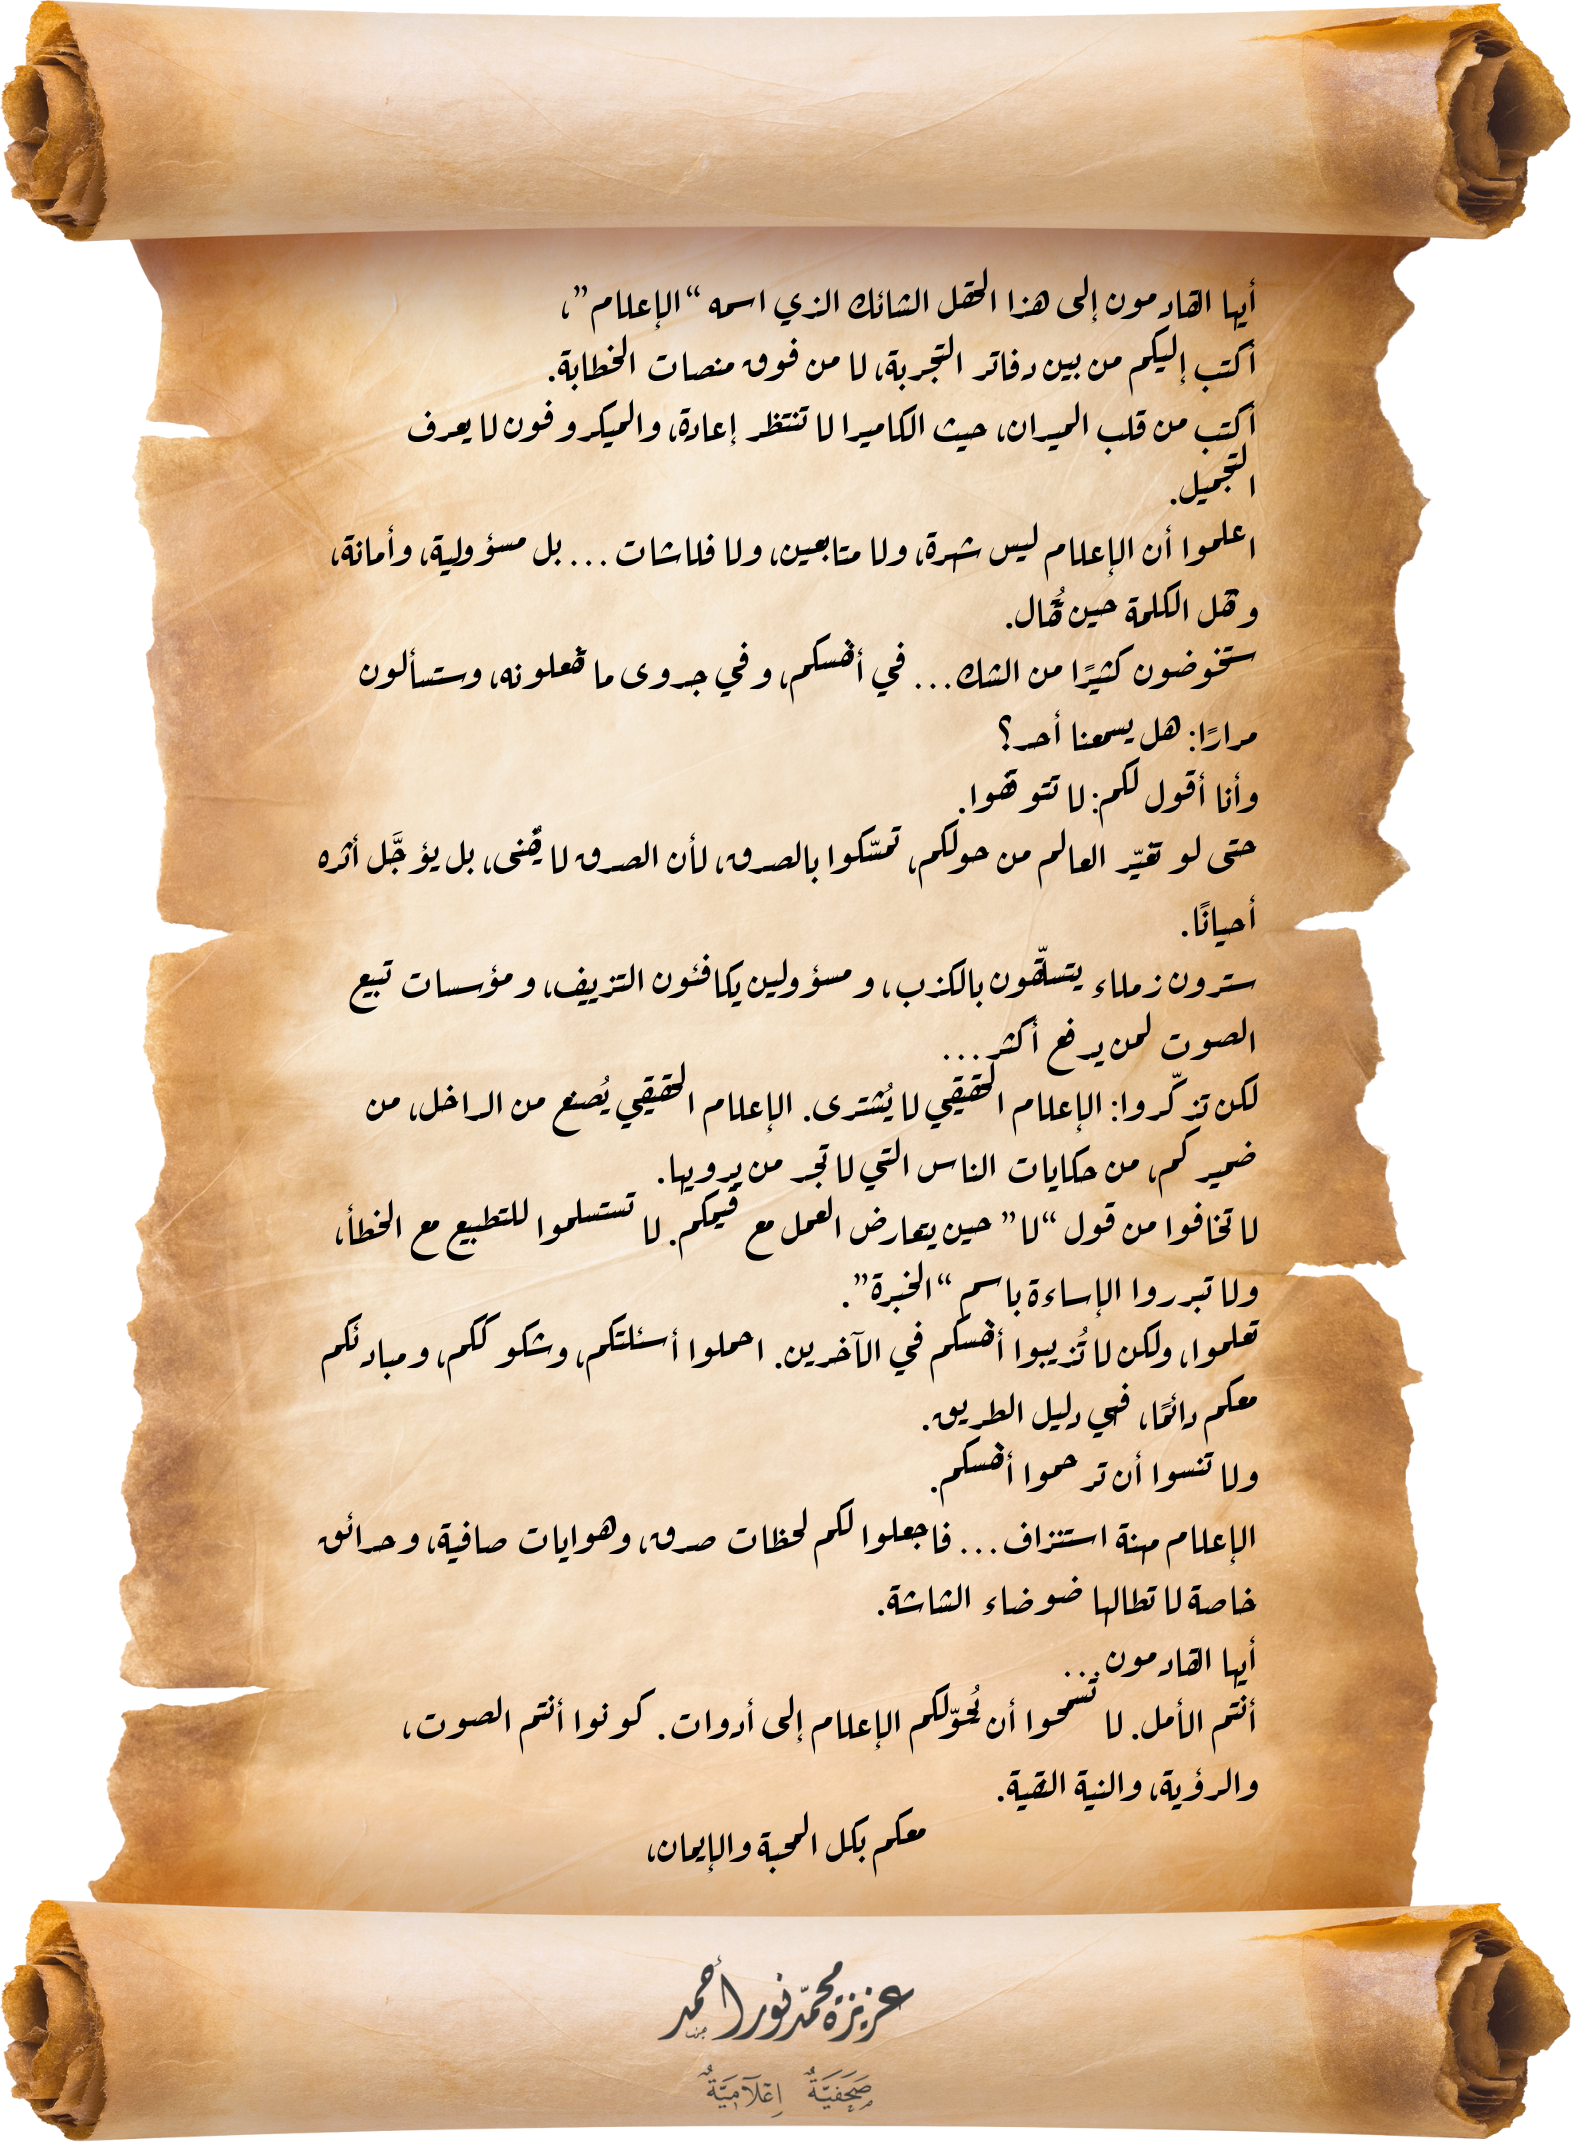 أيها القادمون إلى هذا الحقل الشائك الذي اسمه “الإعلام”،
أكتب إليكم من بين دفاتر التجربة، لا من فوق منصات الخطابة.
أكتب من قلب الميدان، حيث الكاميرا لا تنتظر إعادة، والميكروفون لا يعرف
التجميل.
اعلموا أن الإعلام ليس شهرة، ولا متابعين، ولا فلاشات... بل مسؤولية، وأمانة،
وثقل الكلمة حين تُقال.
ستخوضون كثيرًا من الشك... في أنفسكم، وفي جدوى ما تفعلونه، وستسألون
مرارًا: هل يسمعنا أحد؟
وأنا أقول لكم: لا تتوقفوا.
حتى لو تغيّر العالم من حولكم، تمسّكوا بالصدق، لأن الصدق لا يَفنى، بل يؤجَّل أثره
أحيانًا.
سترون زملاء يتسلّقون بالكذب، ومسؤولين يكافئون التزييف، ومؤسسات تبيع
الصوت لمن يدفع أكثر...
لكن تذكّروا: الإعلام الحقيقي لا يُشترى. الإعلام الحقيقي يُصنع من الداخل، من
ضميركم، من حكايات الناس التي لا تجد من يرويها.
لا تخافوا من قول “لا” حين يتعارض العمل مع قيمكم. لا تستسلموا للتطبيع مع الخطأ،
ولا تبرروا الإساءة باسم “الخبرة”.
تعلموا، ولكن لا تُذيبوا أنفسكم في الآخرين. احملوا أسئلتكم، وشكوككم، ومبادئكم
معكم دائمًا، فهي دليل الطريق.
ولا تنسوا أن ترحموا أنفسكم.
الإعلام مهنة استنزاف... فاجعلوا لكم لحظات صدق، وهوايات صافية، وحدائق
خاصة لا تطالها ضوضاء الشاشة.
أيها القادمون...
أنتم الأمل. لا تسمحوا أن يُحوّلكم الإعلام إلى أدوات. كونوا أنتم الصوت،
والرؤية، والنية النقية.
معكم بكل المحبة والإيمان،
عزيزة محمّد نور أحمد
صَحَفيَّةٌ إعْلَامِيَّةٌ